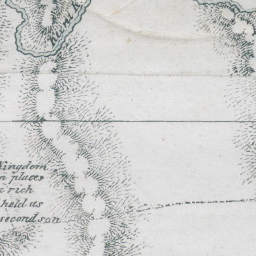 Kingdom
n places
rich
held as
second son